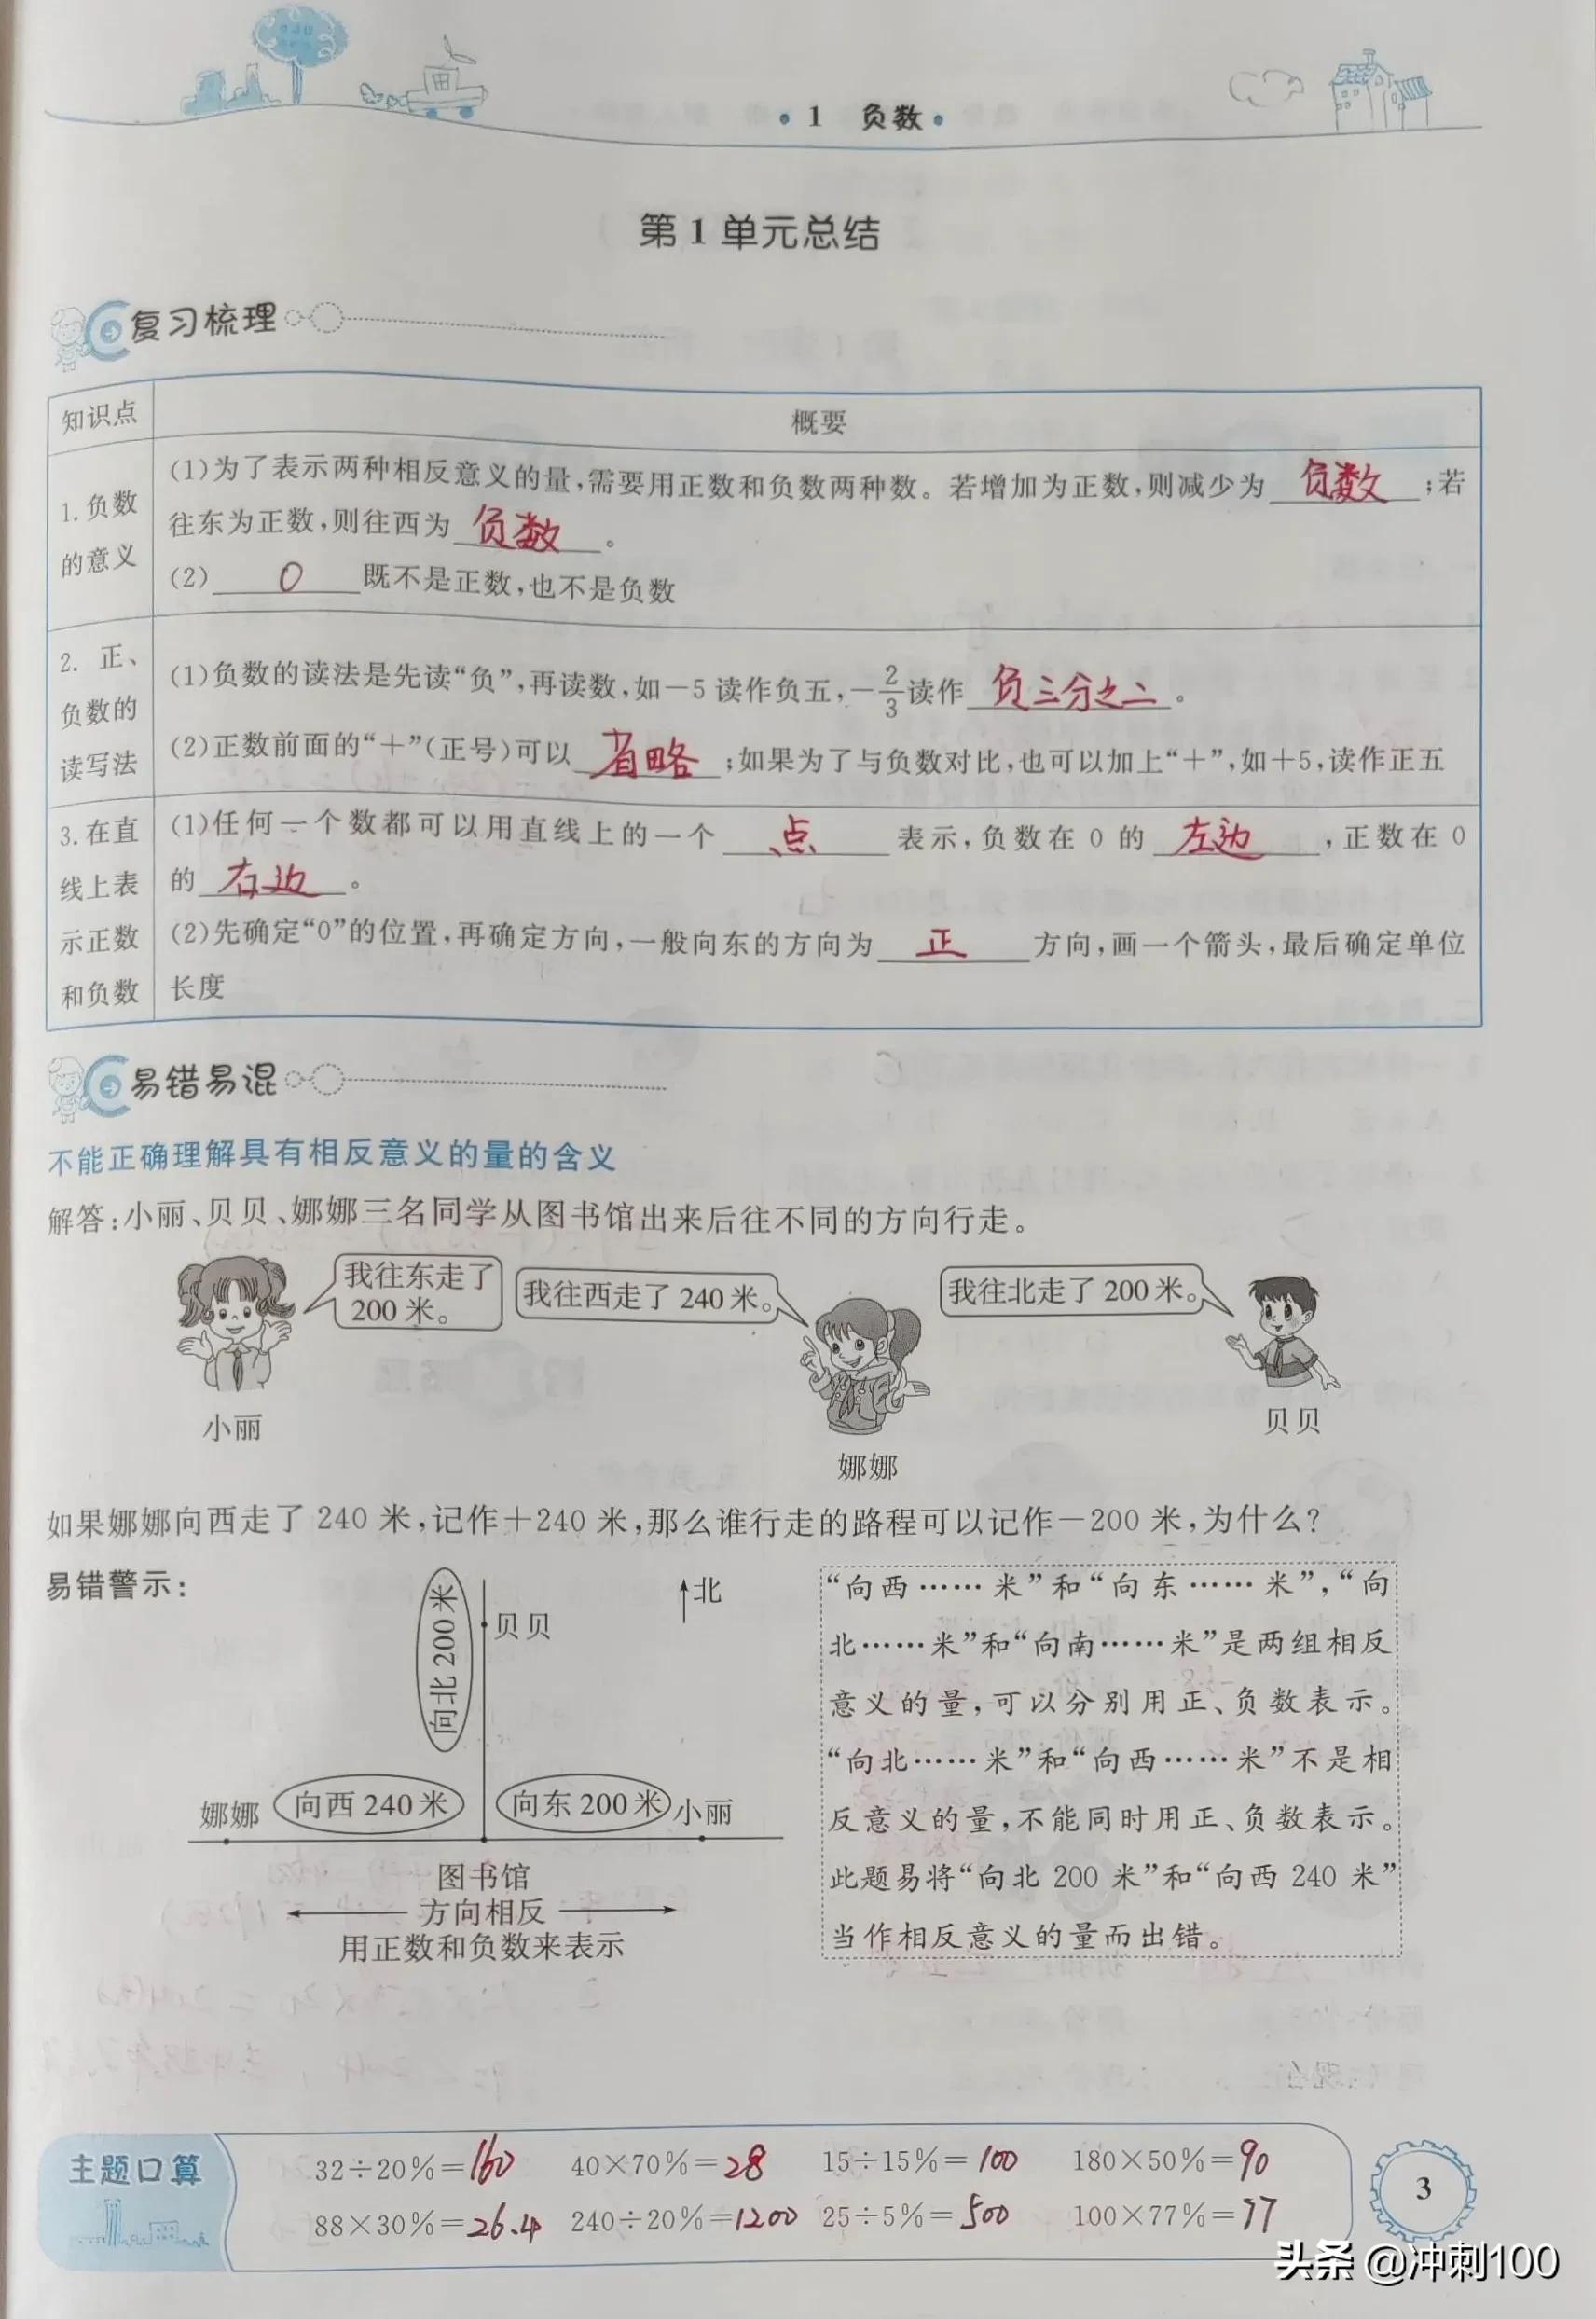 1 负数
第1单元总结
复习梳理
知识点
概要
1.负数
的意义
(1)为了表示两种相反意义的量,需要用正数和负数两种数。若增加为正数,则减少为 负数 ;若
往东为正数,则往西为 负数 。
(2) 0 既不是正数,也不是负数
2. 正、
负数的
读写法
(1)负数的读法是先读“负”,再读数,如－5读作负五,－2/3读作 负三分之二 。
(2)正数前面的“＋”(正号)可以 省略 ;如果为了与负数对比,也可以加上“＋”,如＋5,读作正五
3.在直
线上表
示正数
和负数
(1)任何一个数都可以用直线上的一个 点 表示,负数在0的 左边 ,正数在0
的 右边 。
(2)先确定“0”的位置,再确定方向,一般向东的方向为 正 方向,画一个箭头,最后确定单位
长度
易错易混
不能正确理解具有相反意义的量的含义
解答:小丽、贝贝、娜娜三名同学从图书馆出来后往不同的方向行走。
我往东走了
200米。
我往西走了240米。
我往北走了200米。
小丽
娜娜
贝贝
如果娜娜向西走了240米,记作＋240米,那么谁行走的路程可以记作－200米,为什么?
易错警示:
向北200米
贝贝
北
娜娜
向西240米
向东200米
小丽
图书馆
方向相反
用正数和负数来表示
“向西……米”和“向东……米”,“向
北……米”和“向南……米”是两组相反
意义的量,可以分别用正、负数表示。
“向北……米”和“向西……米”不是相
反意义的量,不能同时用正、负数表示。
此题易将“向北200米”和“向西240米”
当作相反意义的量而出错。
主题口算
32÷20%=160 40×70%=28 15÷15%=100 180×50%=90
88×30%=26.4 240÷20%=1200 25÷5%=500 100×77%=77
3
头条 @冲刺100